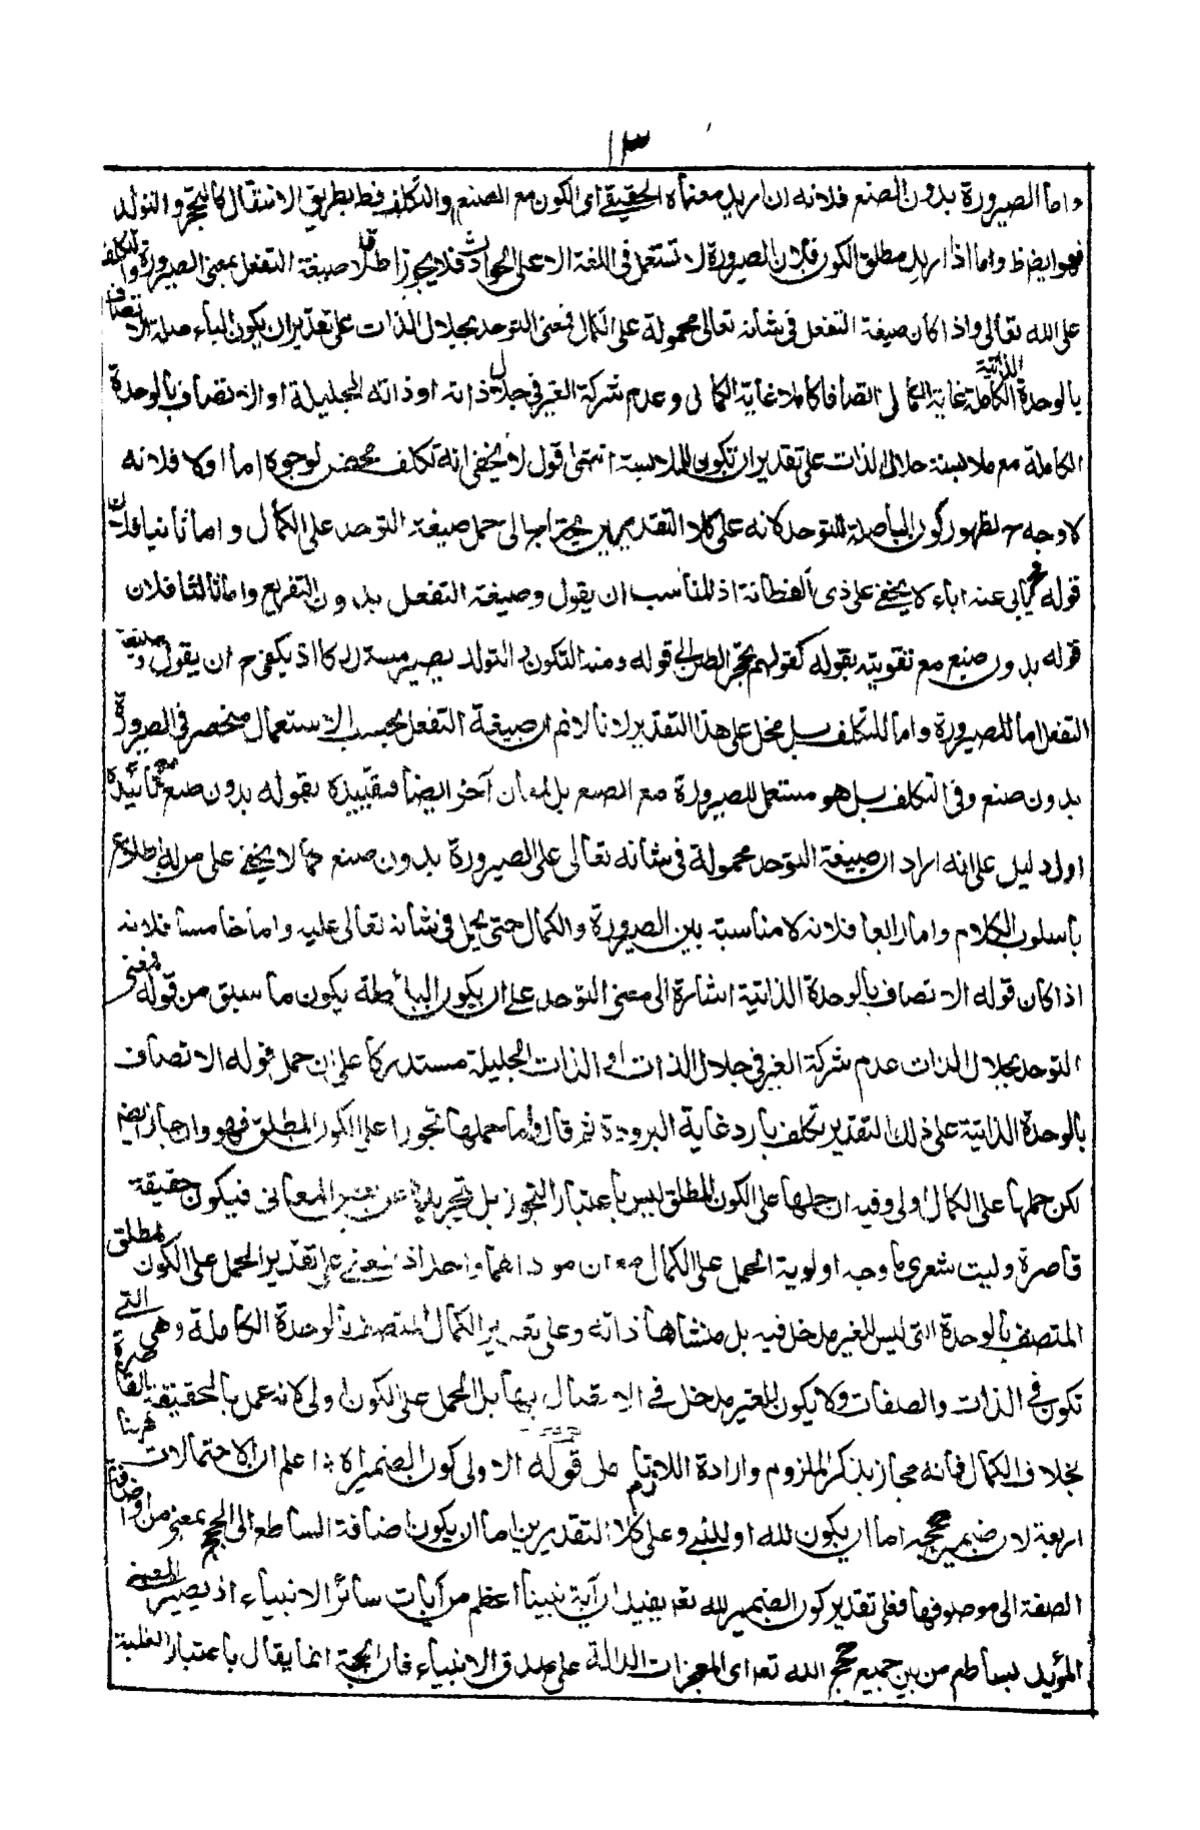 ١٣
واما الصيرورة بدون الصنع فلانه ان اريد معناه الحقيقے اى الكون مع الصنع والتكلف فط بطريق الانتقال كالتحجر والتولد
فهو ايضا ظ واما اذا اريد مطلق الكون فلان الصيرورة لا تستعمل فى اللغة الا على الحوادث فلا يجوز اطلاق صيغة التفعل بمعنى الصيرورة والتكلف
على الله تعالى واذا كان صيغة التفعل فى شانه تعالى محمولة على الكمال فمعنى التوحد بجلال الذات على تقدير ان يكون الباء صلة الاتصاف
بالوحدة الذاتية الكاملة غاية الكمال اتصافا كاملا غاية الكمال وعدم شركة الغير فى جلال ذاته او ذاته الجليلة او الاتصاف بالوحدة
الكاملة مع ملابسة جلال الذات على تقدير ان تكون للملابسة انتهى اقول لا يخفى انه تكلف محض لوجوه اما اولا فلانه
لا وجه ح لظهور كون الباء صلة للتوحد لانه على كلا التقديرين يحتاج الى حمل صيغة التوحد على الكمال واما ثانيا فلان
قوله فح يابى عنه اباء لا يخفى على ذى الفطانة اذ المناسب ان يقول وصيغة التفعل بدون التفريع واما ثالثا فلان
قوله بدون صنع مع تقويته بقوله كقولهم تحجر الطين الى قوله ومنه التكون والتولد يصير مستدركا اذ يكفى ح ان يقول وصيغة
التفعل اما للصيرورة واما للتكلف بل مخل على هذا التقدير لانا لا نم ان صيغة التفعل بحسب الاستعمال منحصر فى الصيرورة
بدون صنع وفى التكلف بل هو مستعمل للصيرورة مع الصنع بل لمعان آخر ايضا فتقييده بقوله بدون صنع مع تائيده
اول دليل على انه اراد ان صيغة التوحد محمولة فى شانه تعالى على الصيرورة بدون صنع كما لا يخفى على من له اطلاع
باسلوب الكلام واما رابعا فلانه لا مناسبة بين الصيرورة والكمال حتى يحمل فى شانه تعالى عليه واما خامسا فلانه
اذا كان قوله الاتصاف بالوحدة الذاتية اشارة الى معنى التوحد على ان يكون الباء صلة يكون ما سبق من قوله فمعنى
التوحد بجلال الذات عدم شركة الغير فى جلال الذات او الذات الجليلة مستدركا على ان حمل قوله الاتصاف
بالوحدة الذاتية على ذلك التقدير تكلف بارد غاية البرودة ثم قال واما حملها تجوزا على الكون المطلق فهو وان جاز ايضا
لكن حملها على الكمال اولى وفيه ان حملها على الكون المطلق ليس باعتبار التجوز بل بتجريدها عن بعض المعانى فيكون حقيقة
قاصرة وليت شعرى ما وجه اولوية الحمل على الكمال مع ان موداهما واحد اذ المعنى على تقدير الحمل على الكون المطلق
المتصف بالوحدة التى ليس للغير مدخل فيه بل منشاها ذاته وعلى تقدير الكمال المتصف بالوحدة الكاملة وهى التى
تكون فى الذات والصفات ولا يكون للغير مدخل فى الاتصاف بها بل الحمل على الكون اولى لانه عمل بالحقيقة القاصرة
بخلاف الكمال فانه مجاز بذكر الملزوم وارادة اللازم قوله الاولى كون الضمير اه اعلم ان الاحتمالات ههنا
اربعة لان ضمير حججه اما ان يكون لله او للنبى وعلى كلا التقديرين اما ان يكون اضافة الساطع الى الحجج بمعنى من او اضافة
الصفة الى موصوفها فعلى تقدير كون الضمير لله تعه يفيد ان آية نبينا اعظم من آيات سائر الانبياء اذ يصير المعنى
المؤيد بساطع من بين جميع حجج الله تعه اى المعجزات الدالة على صدق الانبياء فان الحجة انما يقال باعتبار الغلبة